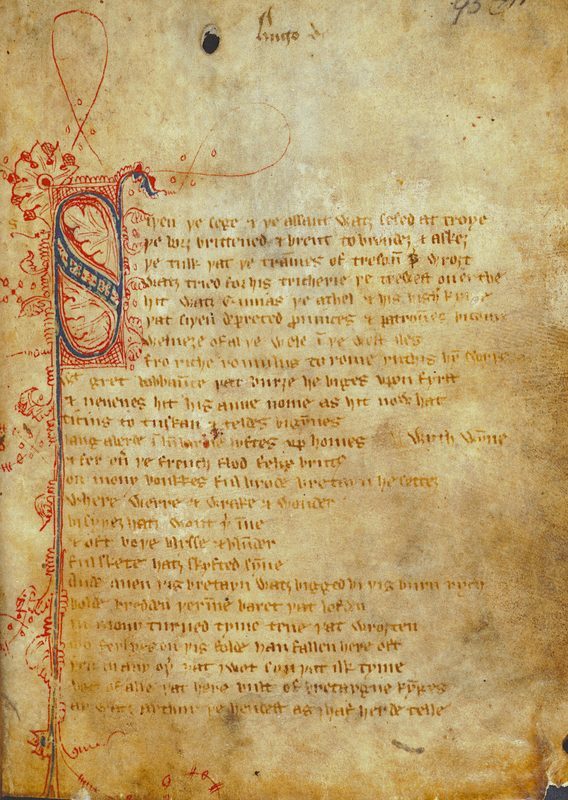 Hugo de
Siþen þe sege & þe assaut watz sesed at troye
þe borȝ brittened & brent to brondeȝ & askez
þe tulk þat þe trammes of tresoun þ̲ wroȝt
watz tried for his tricherie þe trewest on erthe
hit watz Ennias þe athel & his highe kynde
þat siþen depreced prouinces & patrounes bicome
welneȝe of al þe wele ī þe west iles
fro riche romulus to rome ricchis hȳ swyþe
wt gret bobbaūce þat burȝe he biges vpon fyrst
& neuenes hit his aune nome as hit now hat
ticius to tuskan & teldes bigȳnes
langaberde ī lūbardie lyftes vp homes wyth wȳne
& fer oū þe french flod felix brutus
on mony bonkkes ful brode bretayn he settez
where werre & wrake & wonder
bi syþez hatz wont þ̲ īne
& oft boþe blysse & blūder
ful skete hatz skyfted sȳne
Ande quen þis bretayn watz bigged bi þis burn rych
bolde bredden þerīne baret þat lofden
in mony turned tyme tene þat wroȝten
mo ferlyes on þis folde han fallen here oft
þen in any oþ̲ þat I wot syn þat ilk tyme
bot of alle þat here bult of bretaygne kȳges
ay watz arthur þe hendest as I haf herde telle